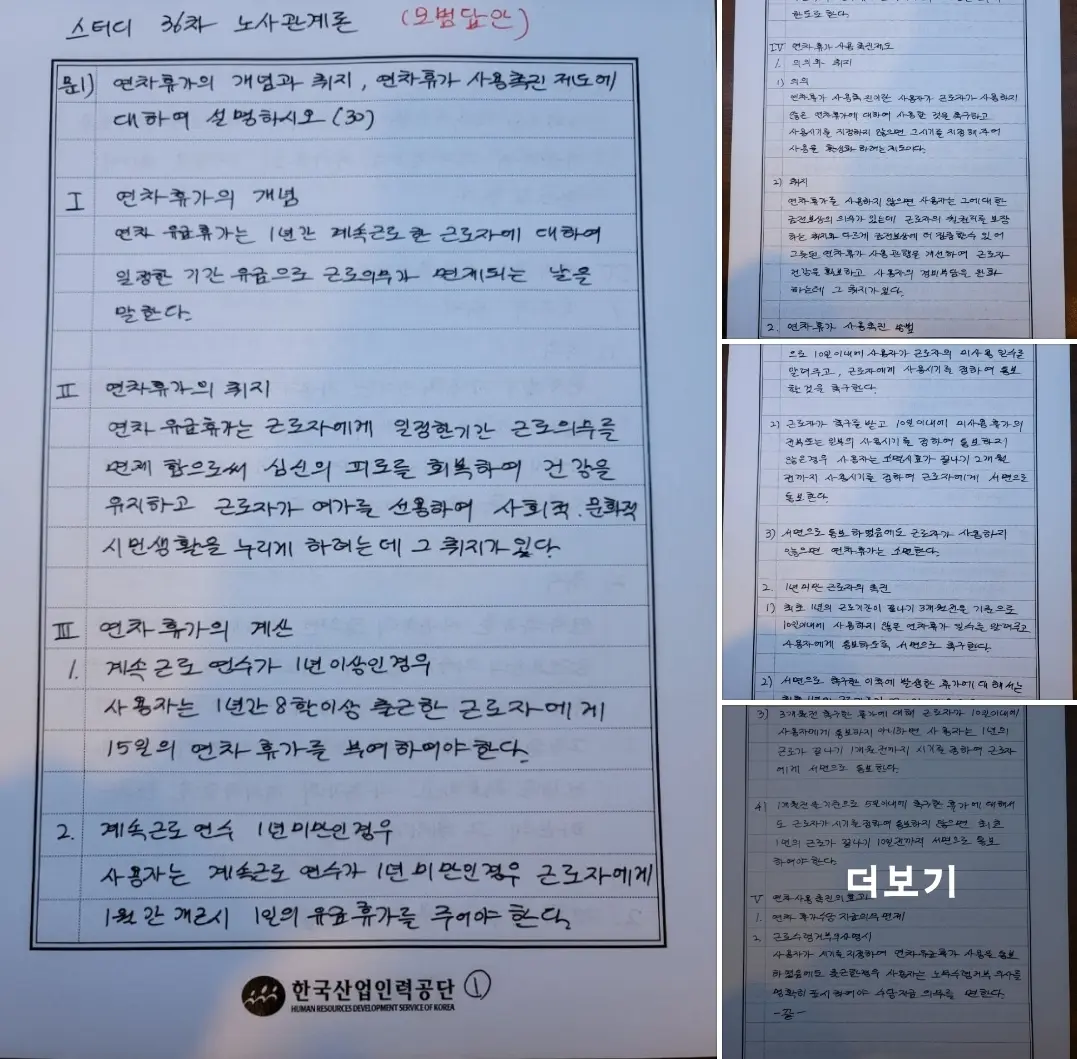 스터디 36차 노사관계론 (모범답안)
문1) 연차휴가의 개념과 취지, 연차휴가 사용촉진 제도에
대하여 설명하시오 (30)
I 연차휴가의 개념
연차 유급휴가는 1년간 계속근로한 근로자에 대하여
일정한 기간 유급으로 근로의무가 면제되는 날을
말한다.
II 연차휴가의 취지
연차 유급휴가는 근로자에게 일정한기간 근로의무를
면제 함으로써 심신의 피로를 회복하여 건강을
유지하고 근로자가 여가를 선용하여 사회적.문화적
시민생활을 누리게 하려는데 그 취지가 있다.
III 연차 휴가의 계산
1. 계속 근로 연수가 1년 이상인 경우
사용자는 1년간 8할이상 출근한 근로자에게
15일의 연차 휴가를 부여하여야 한다.
2. 계속근로 연수 1년미만인 경우
사용자는 계속근로 연수가 1년 미만인경우 근로자에게
1월간 개근시 1일의 유급휴가를 주어야 한다.
한국산업인력공단 ①
HUMAN RESOURCES DEVELOPMENT SERVICE OF KOREA
한도로 한다.
IV 연차휴가 사용촉진제도
1. 의의와 취지
1) 의의
연차휴가 사용촉진이란 사용자가 근로자가 사용하지
않은 연차휴가에 대하여 사용할 것을 촉구하고
사용시기를 지정하지 않으면 그시기를 지정해 주어
사용을 활성화 하려는 제도이다.
2) 취지
연차휴가를 사용하지 않으면 사용자는 그에 대한
금전보상의 의무가 있는데 근로자의 휴식권리를 보장
하는 취지와 다르게 금전보상에 더 집중할수 있어
그릇된 연차휴가 사용관행을 개선하여 근로자
건강을 확보하고 사용자의 경비부담을 완화
하는데 그 취지가 있다.
2. 연차휴가 사용촉진 방법
으로 10일이내에 사용자가 근로자의 미사용 일수를
알려주고, 근로자에게 사용시기를 정하여 통보
할 것을 촉구한다.
2) 근로자가 촉구를 받고 10일이내에 미사용휴가의
전부또는 일부의 사용시기를 정하여 통보하지
않은경우 사용자는 소멸시효가 끝나기 2개월
전까지 사용시기를 정하여 근로자에게 서면으로
통보한다.
3) 서면으로 통보하였음에도 근로자가 사용하지
않으면 연차휴가는 소멸한다.
2. 1년미만 근로자의 촉진
1) 최초 1년의 근로기간이 끝나기 3개월전을 기준으로
10일이내에 사용하지 않은 연차휴가 일수를 알려주고
사용자에게 통보하도록 서면으로 촉구한다.
2) 서면으로 촉구한 이후에 발생한 휴가에 대해서는
3) 3개월전 촉구한 휴가에 대해 근로자가 10일이내에
사용자에게 통보하지 아니하면 사용자는 1년의
근로가 끝나기 1개월전까지 시기를 정하여 근로자
에게 서면으로 통보한다.
4) 1개월전을 기준으로 5일이내에 촉구한 휴가에 대해서
도 근로자가 시기를 정하여 통보하지 않으면 최초
1년의 근로가 끝나기 10일전까지 서면으로 통보
하여야 한다.
더보기
V 연차사용 촉진의 효과
1. 연차 휴가수당 지급의무 면제
2. 근로수령거부의사명시
사용자가 시기를 지정하여 연차유급휴가 사용을 통보
하였음에도 출근한경우 사용자는 노무수령거부 의사를
명확히 표시하여야 수당지급 의무를 면한다.
-끝-